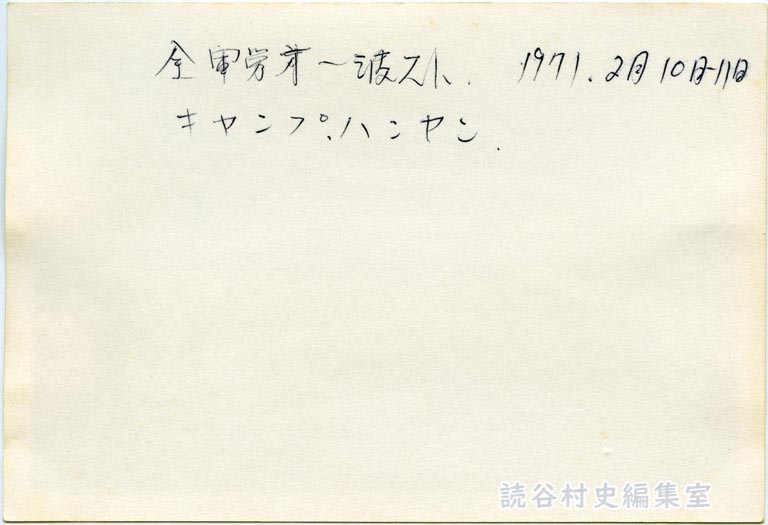 全軍労オ一波スト. 1971.2月10日11日
キャンプ.ハンヤン.
読谷村史編集室